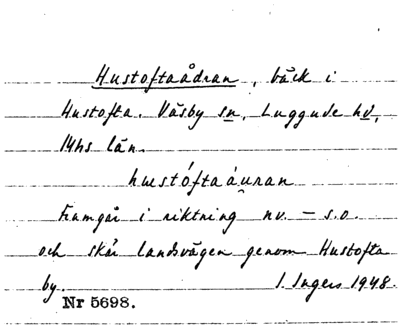 Hustoftaådran, bäck i
Hustofta. Väsby sn, Luggude hd,
Mhs län.
hustóftaáuran
Framgår i riktning nv. – s.o.
och skär landsvägen genom Hustofta
by. I. Ingers 1948.
Nr 5698.